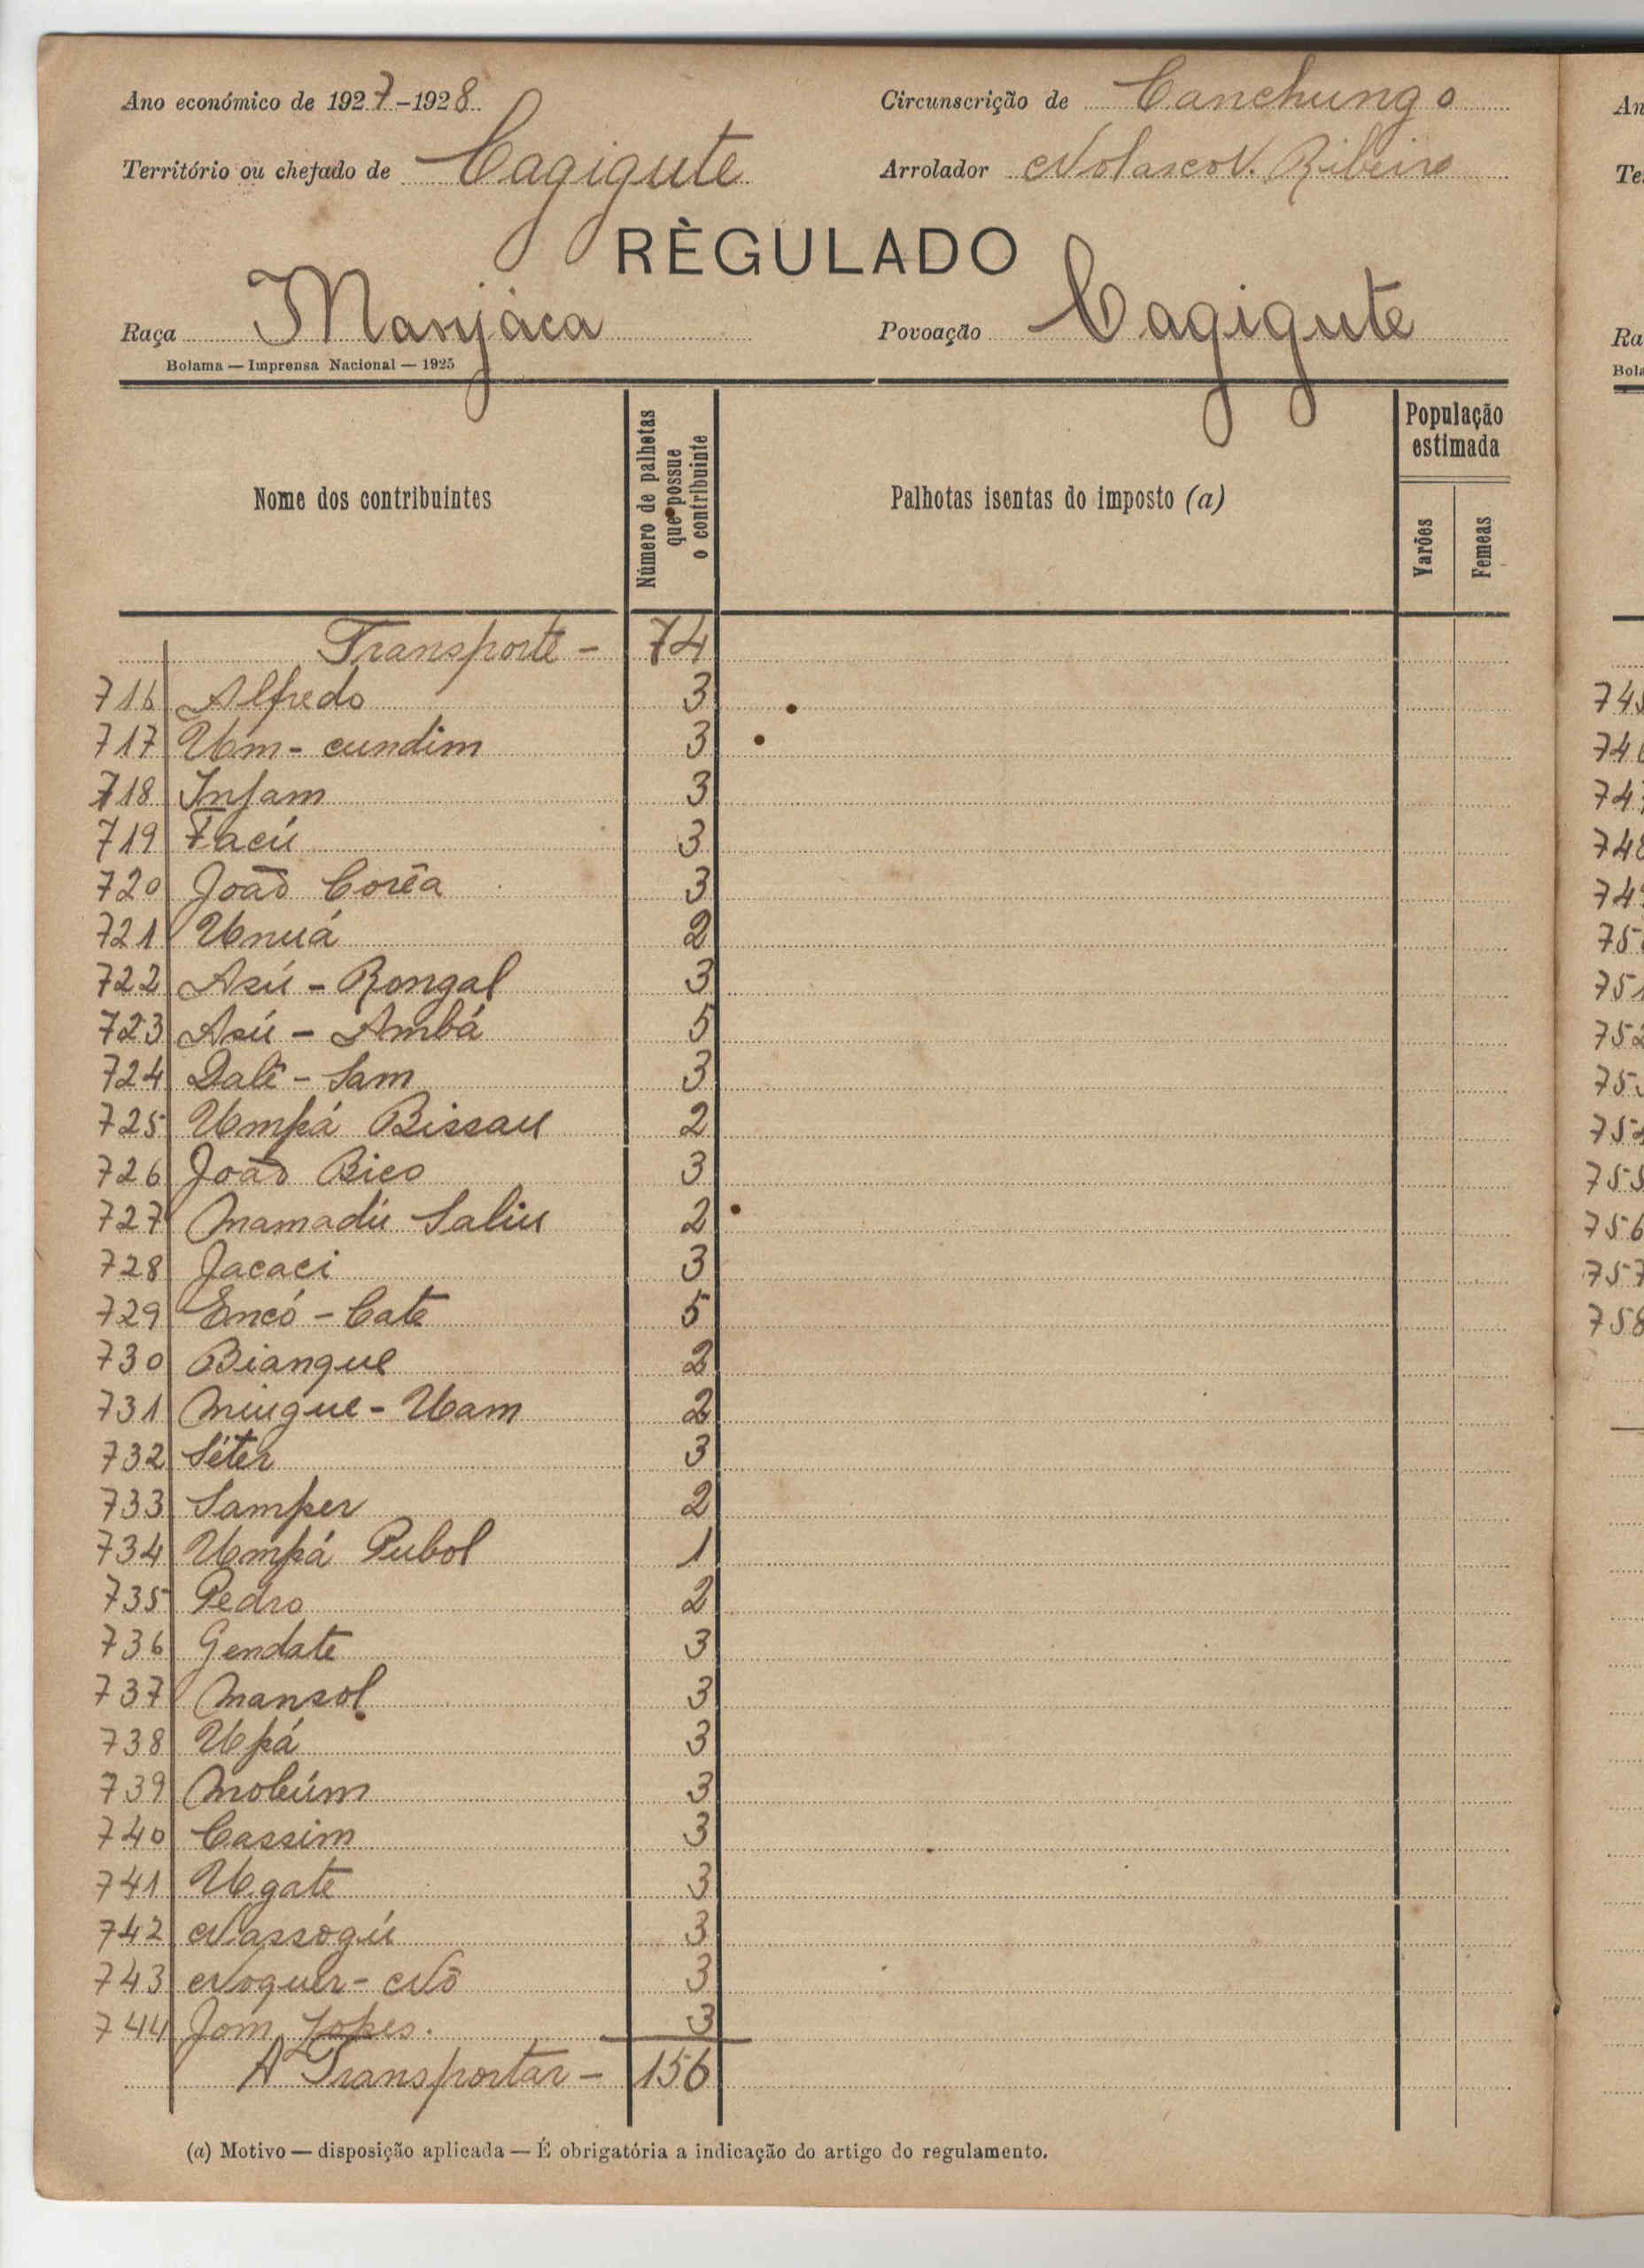 Ano económico de 1927-1928
Circunscrição de Canchungo
Território ou chefado de Cagigute
Arrolador Nolasco V. Ribeiro
RÈGULADO
Raça Manjáca
Povoação Cagigute
Bolama — Imprensa Nacional — 1925
Nome dos contribuintes
Número de palhotas que possue o contribuinte
Palhotas isentas do imposto (a)
População estimada
Varões
Femeas
Transporte - 74
716 Alfredo 3
717 Um-cundim 3
718 Infam 3
719 Facú 3
720 João Corêa 3
721 Unuá 2
722 Asú - Rongal 3
723 Asú - Ambá 5
724 Dalê - Sam 3
725 Umpá Bissau 2
726 João Bico 3
727 Mamadú Saliu 2
728 Jacaci 3
729 Encó - Cate 5
730 Biangue 2
731 Mingue - Uam 2
732 Séter 3
733 Samper 2
734 Umpá Pubol 1
735 Pedro 2
736 Gendate 3
737 Mansol 3
738 Upá 3
739 Mobúm 3
740 Cassim 3
741 Ugate 3
742 Nassogú 3
743 Noquer - Nô 3
744 Jom Lopes. 3
A Transportar - 156
(a) Motivo — disposição aplicada — É obrigatória a indicação do artigo do regulamento.